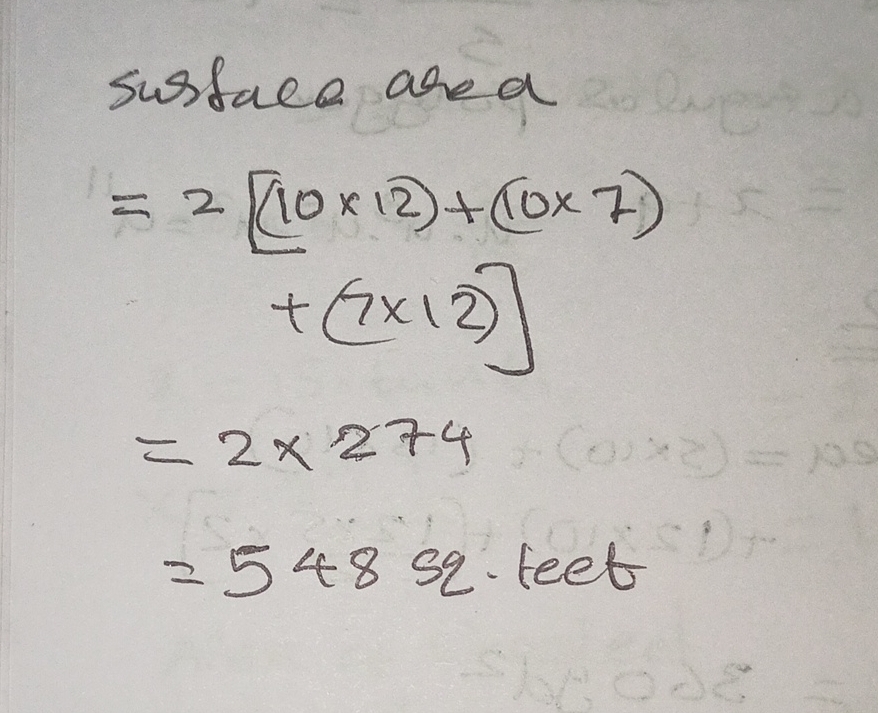 surface area
= 2 [(10 x 12) + (10 x 7)
+ (7x12)]
= 2 x 274
= 548 sq. feet